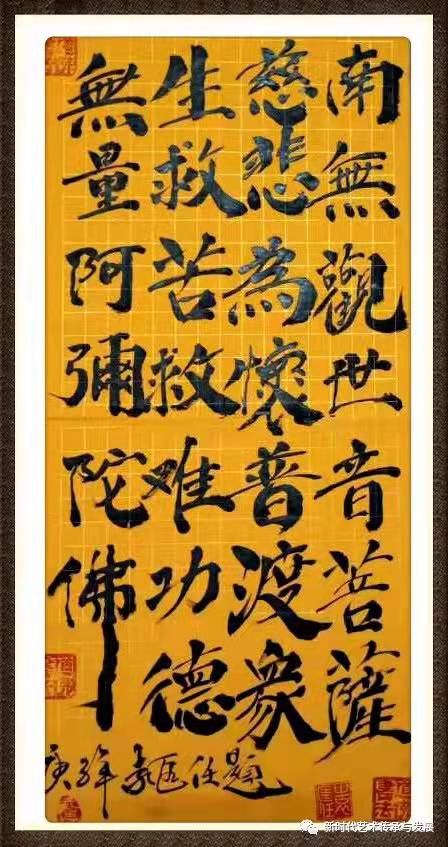 南無觀世音菩薩
慈悲為懷普渡衆
生救苦救难功德
無量阿彌陀佛
新时代艺术传承与发展